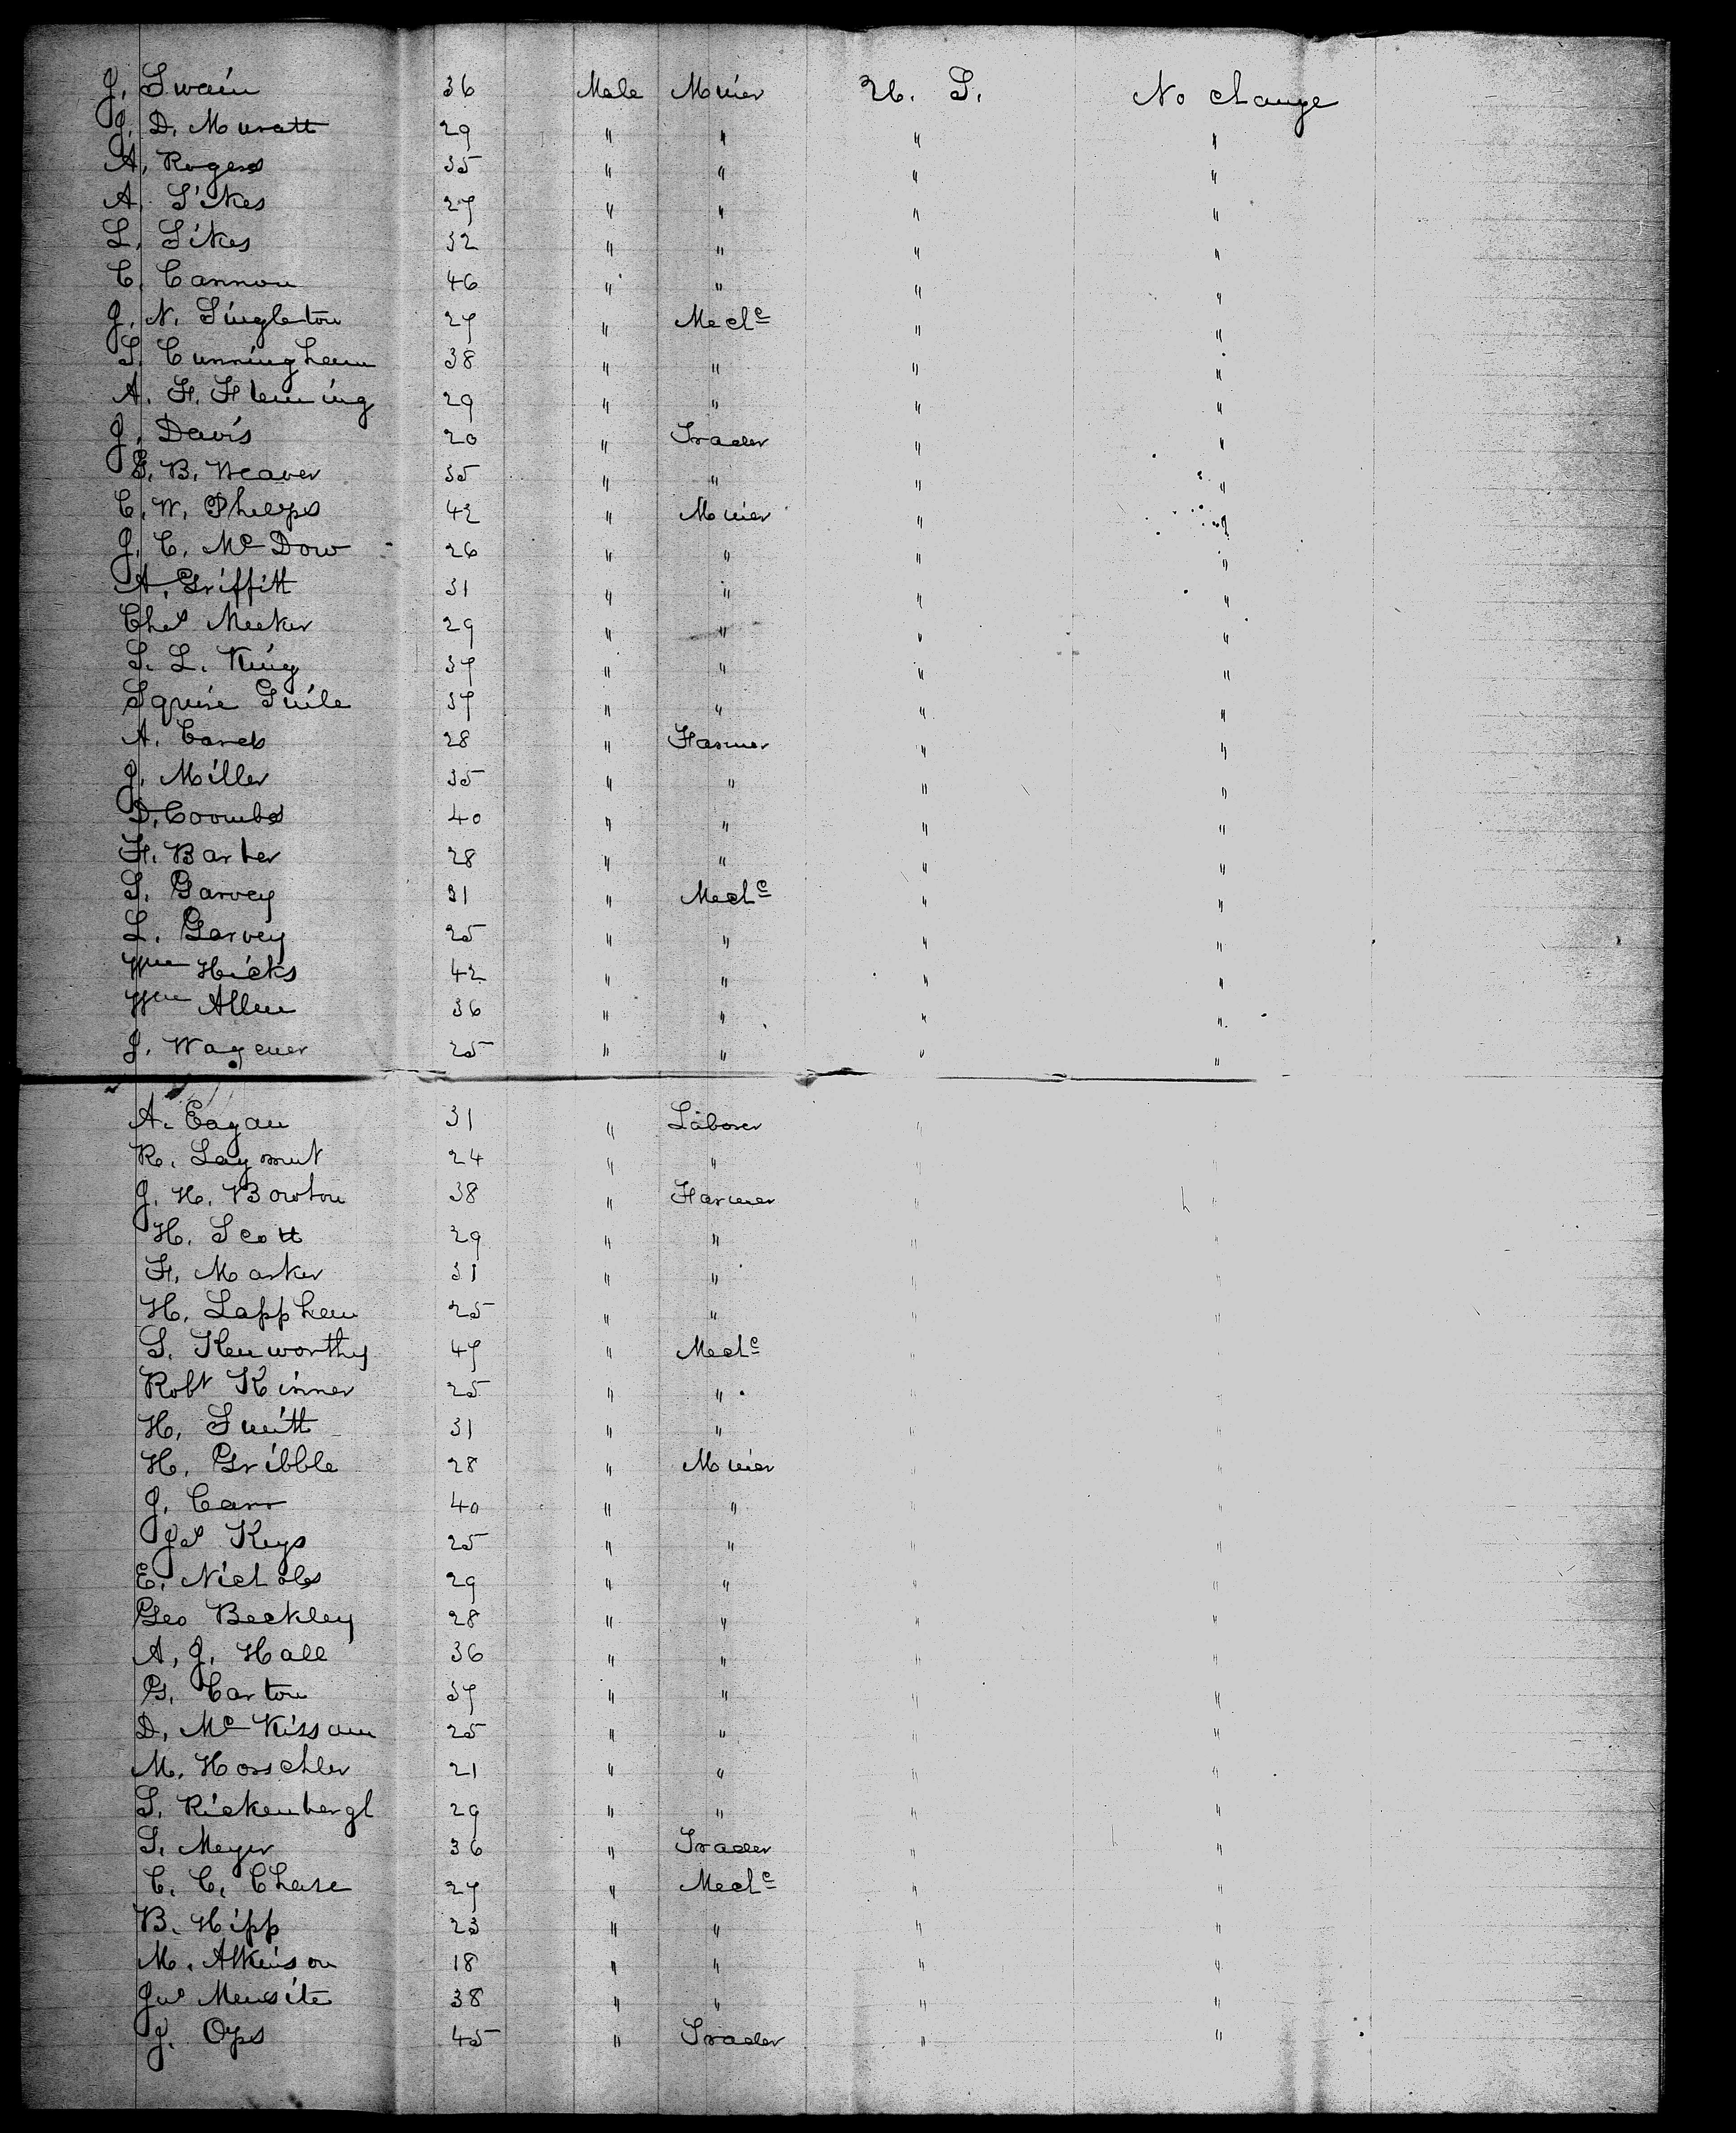 J. Swain 36 Male Miner U. S. No change
J. D. Muratt 29 " " " "
A. Rogers 35 " " " "
A. Sikes 27 " " " "
L. Sikes 32 " " " "
C. Cannon 46 " " " "
J. N. Singleton 27 " Mech^c " "
S. Cunningham 38 " " " "
A. F. Fleming 29 " " " "
J. Davis 20 " Trader " "
G. B. Weaver 35 " " " "
C. W. Phelps 42 " Miner " "
J. C. Mc Dow 26 " " " "
A. Griffith 31 " " " "
Chs Meeker 29 " " " "
S. L. King 37 " " " "
Squire Guile 37 " " " "
A. 28 " Farmer " "
J. Miller 35 " " " "
D. Coombs 40 " " " "
F. Barber 28 " " " "
S. Garvey 31 " Mech^c " "
L. Garvey 25 " " " "
Wm Hicks 42 " " " "
Wm Allen 36 " " " "
J. Wagener 25 " " " "
A. Eagan 31 " Laborer " "
R. 24 " " " "
J. H. Bowton 38 " Farmer " "
H. Scott 29 " " " "
F. Marker 31 " " " "
H. Lappham 25 " " " "
S. Kenworthy 47 " Mech^c " "
Robt Kinner 25 " " " "
H. Smith 31 " " " "
H. Gribble 28 " Miner " "
J. Carr 40 " " " "
Js Keys 25 " " " "
E. Nichols 29 " " " "
Geo Beckley 28 " " " "
A. J. Hall 36 " " " "
G. Carton 37 " " " "
D. Mc Kissam 25 " " " "
M. Horschler 21 " " " "
S. Rickenbergh 29 " " " "
S. Meyer 36 " Trader " "
C. C. Chase 27 " Mech^c " "
B. Hipp 23 " " " "
M. Atkinson 18 " " " "
Jno Mensite 38 " " " "
J. Ops 45 " Trader " "